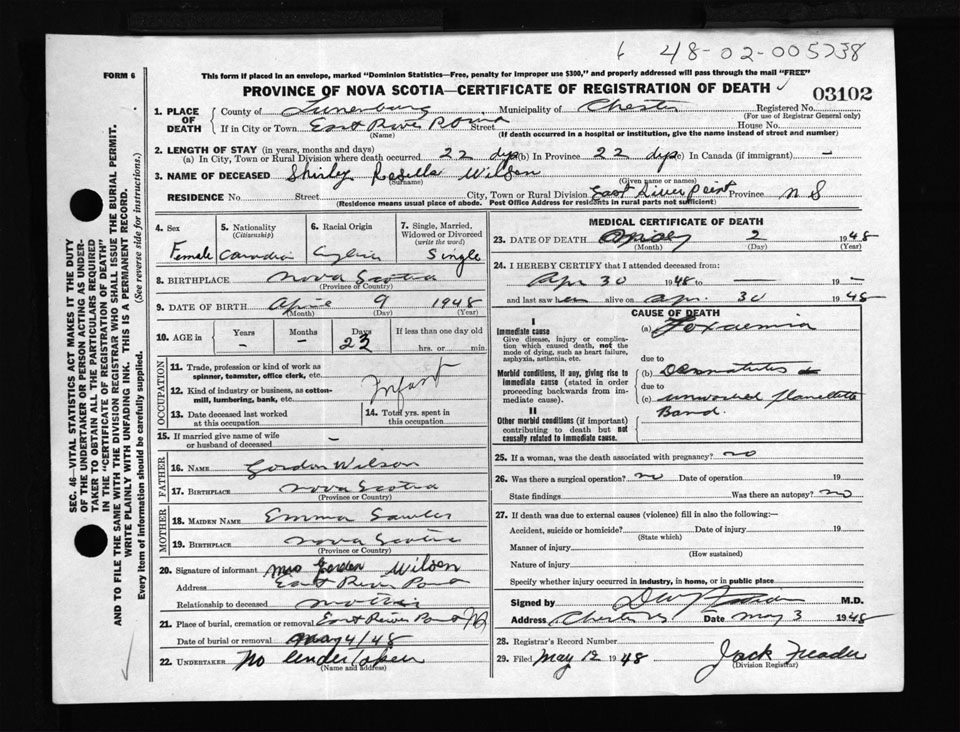 6 48-02-005238
FORM 6
This form if placed in an envelope, marked "Dominion Statistics—Free, penalty for improper use $300," and properly addressed will pass through the mail "FREE"
PROVINCE OF NOVA SCOTIA—CERTIFICATE OF REGISTRATION OF DEATH
03102
1. PLACE OF DEATH
County of Lunenburg Municipality of Chester Registered No.
(For use of Registrar General only)
If in City or Town East River Point Street House No.
(Name) (If death occurred in a hospital or institution, give the name instead of street and number)
2. LENGTH OF STAY (in years, months and days)
(a) In City, Town or Rural Division where death occurred 22 dys (b) In Province 22 dys (c) In Canada (if immigrant) —
3. NAME OF DECEASED Shirley Rosella Wilson
(Surname) (Given name or names)
RESIDENCE No. Street City, Town or Rural Division East River Point Province N S
(Residence means usual place of abode. Post Office Address for residents in rural parts not sufficient)
4. Sex
Female
5. Nationality
(Citizenship)
Canadian
6. Racial Origin
7. Single, Married, Widowed or Divorced
(write the word)
Single
8. BIRTHPLACE Nova Scotia
(Province or Country)
9. DATE OF BIRTH April 9 1948
(Month) (Day) (Year)
10. AGE in
Years Months Days If less than one day old
— — 23 hrs. or min.
OCCUPATION
11. Trade, profession or kind of work as spinner, teamster, office clerk, etc.
Infant
12. Kind of industry or business, as cotton-mill, lumbering, bank, etc.
13. Date deceased last worked at this occupation
14. Total yrs. spent in this occupation
15. If married give name of wife or husband of deceased —
FATHER
16. NAME Gordon Wilson
17. BIRTHPLACE Nova Scotia
(Province or Country)
MOTHER
18. MAIDEN NAME Emma Sawler
19. BIRTHPLACE Nova Scotia
(Province or Country)
20. Signature of informant Mrs Gordon Wilson
Address East River Point
Relationship to deceased Mother
21. Place of burial, cremation or removal East River Point NS
Date of burial or removal May 4/48
22. UNDERTAKER No undertaker
(Name and address)
MEDICAL CERTIFICATE OF DEATH
23. DATE OF DEATH 2 1948
(Month) (Day) (Year)
24. I HEREBY CERTIFY that I attended deceased from:
Apr 30 1948 to — 19 —
and last saw her alive on Apr. 30 1948
CAUSE OF DEATH
I
Immediate cause
Give disease, injury or complication which caused death, not the mode of dying, such as heart failure, asphyxia, asthenia, etc.
(a) Toxaemia
due to
Morbid conditions, if any, giving rise to immediate cause (stated in order proceeding backwards from immediate cause).
(b) Dermatitis
due to
(c) unwashed flanelette
Band.
II
Other morbid conditions (if important) contributing to death but not causally related to immediate cause.
25. If a woman, was the death associated with pregnancy? no
26. Was there a surgical operation? no Date of operation 19
State findings Was there an autopsy? no
27. If death was due to external causes (violence) fill in also the following:—
Accident, suicide or homicide? Date of injury 19
(State which)
Manner of injury
(How sustained)
Nature of injury
Specify whether injury occurred in industry, in home, or in public place
Signed by M.D.
Address Chester NS Date May 3 1948
28. Registrar's Record Number
29. Filed May 12 1948 Jack
(Division Registrar)
SEC. 46—VITAL STATISTICS ACT MAKES IT THE DUTY
OF THE UNDERTAKER OR PERSON ACTING AS UNDERTAKER TO OBTAIN ALL THE PARTICULARS REQUIRED
IN THE "CERTIFICATE OF REGISTRATION OF DEATH"
AND TO FILE THE SAME WITH THE DIVISION REGISTRAR WHO SHALL ISSUE THE BURIAL PERMIT.
WRITE PLAINLY WITH UNFADING INK. THIS IS A PERMANENT RECORD.
Every item of information should be carefully supplied. (See reverse side for instructions.)